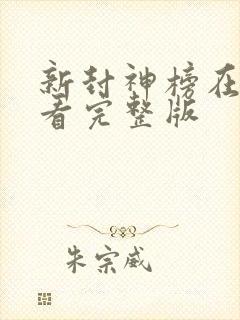 新封神榜在
看完整版
朱宗威